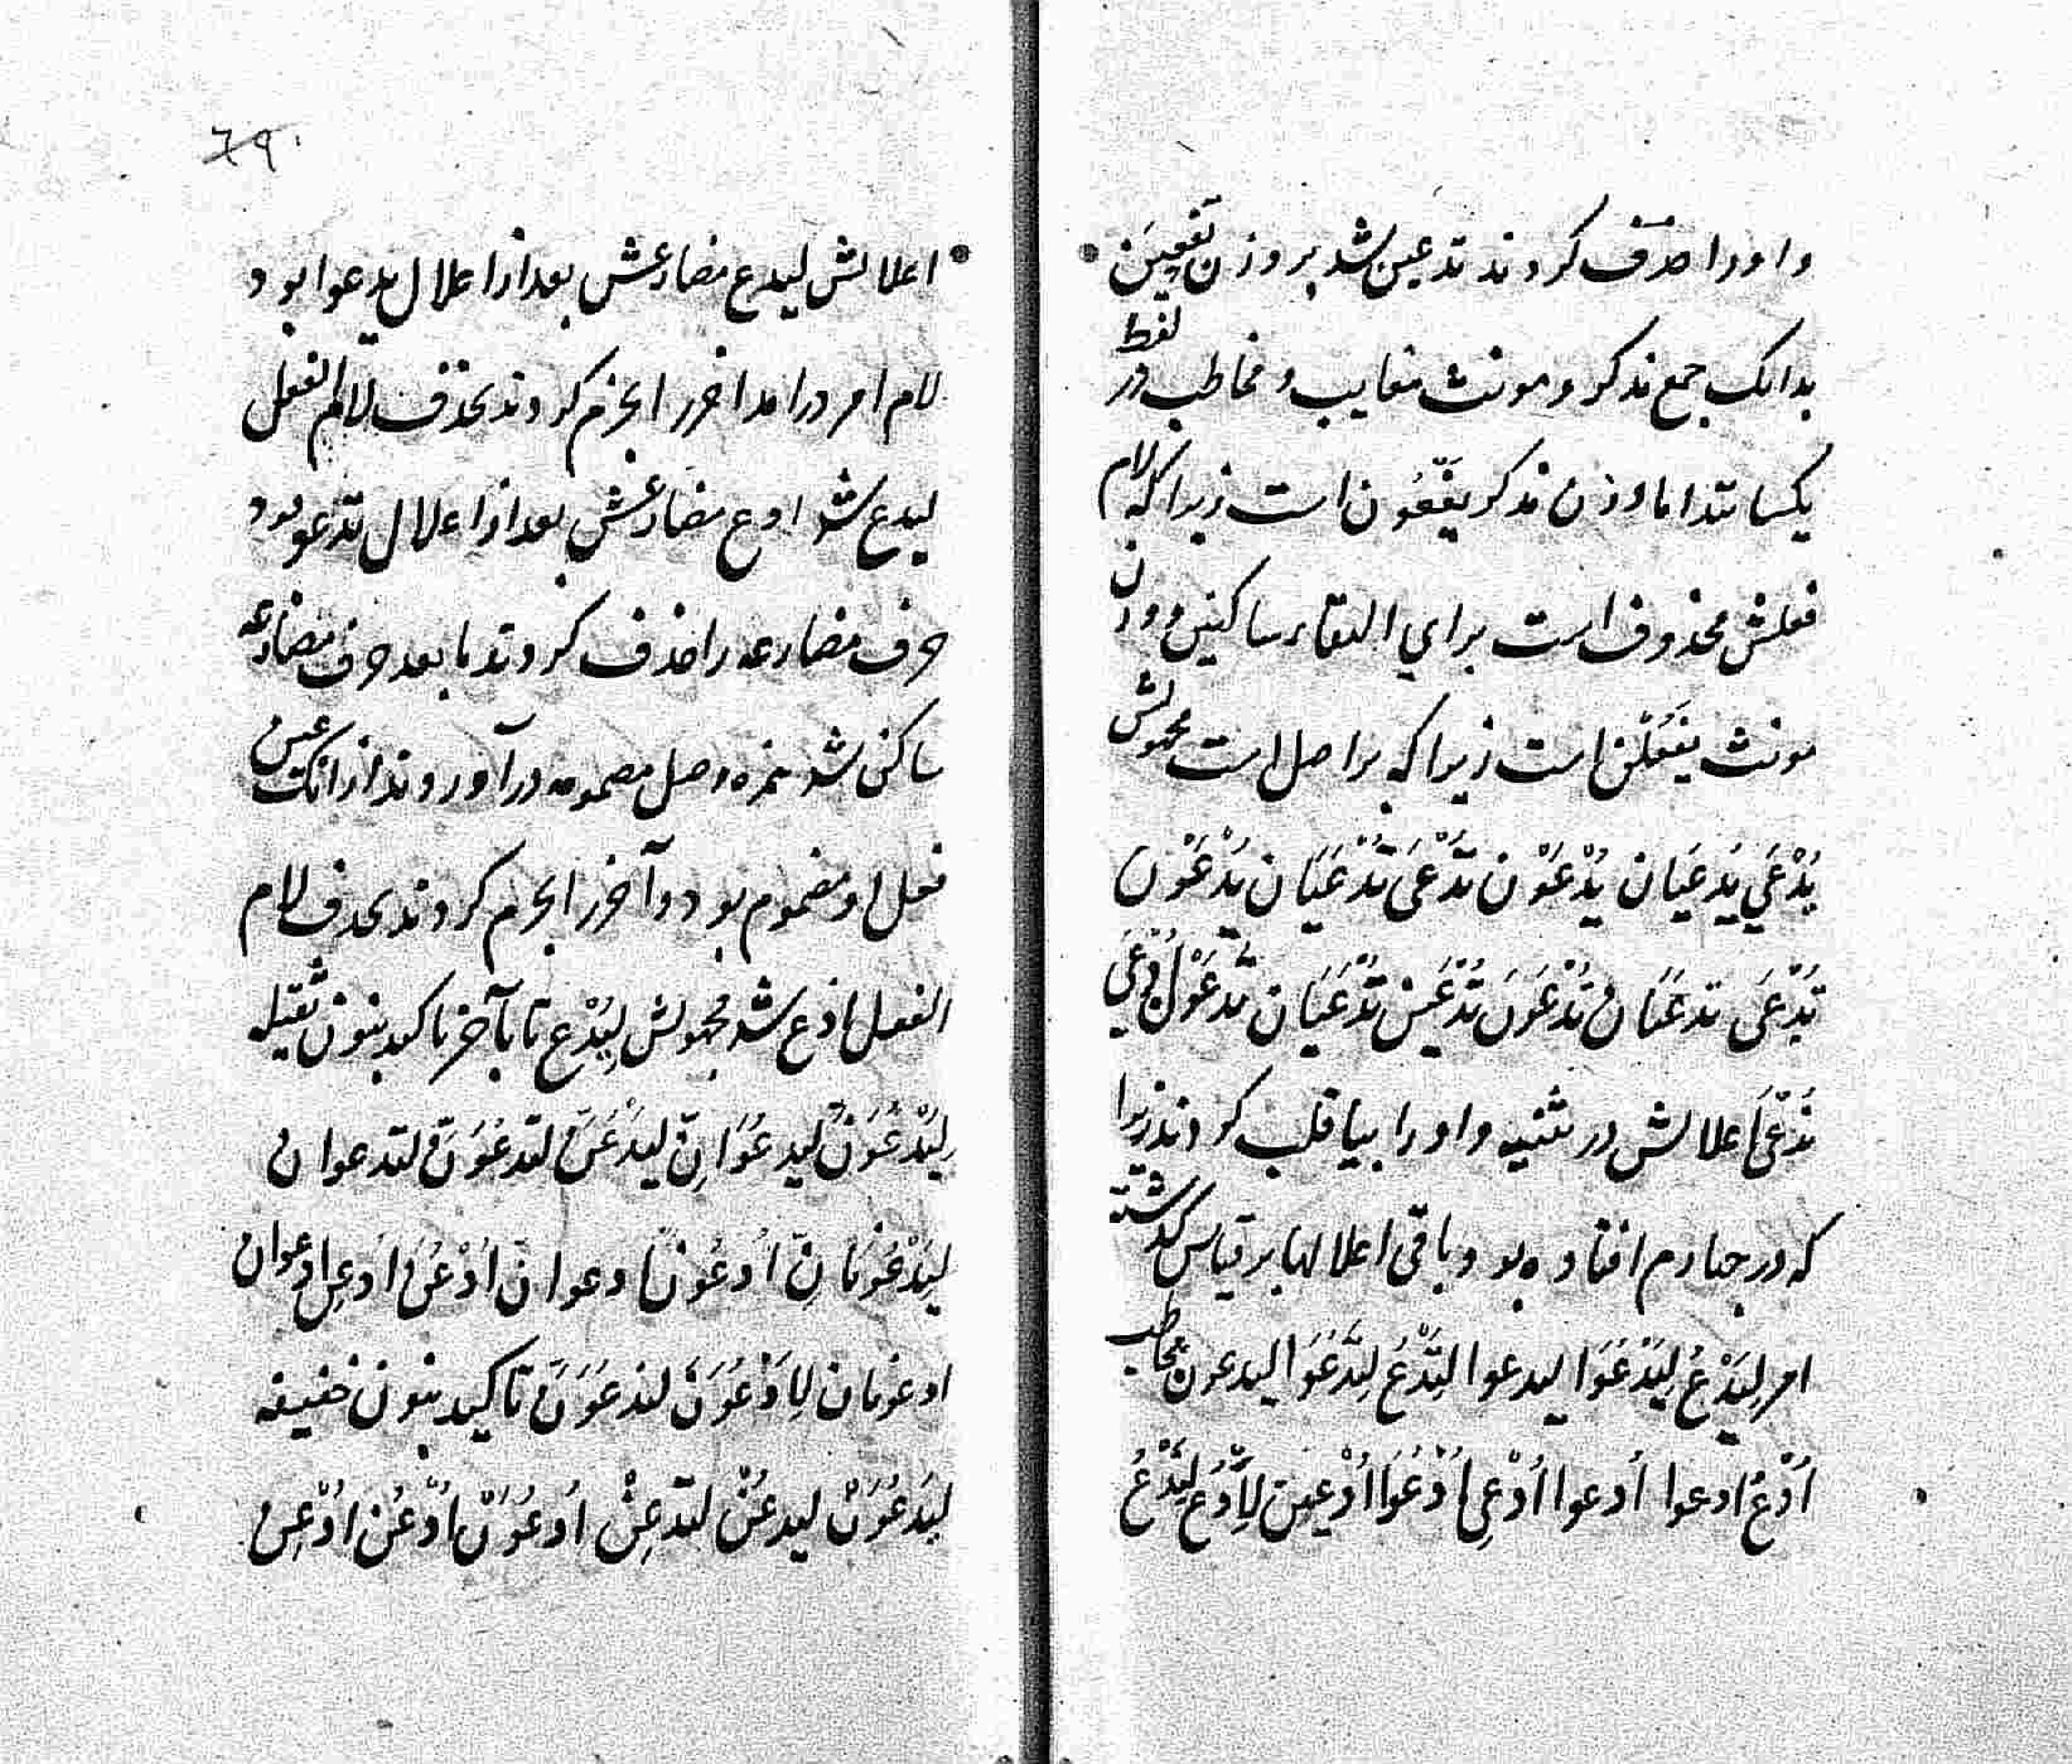 واو را حذف کردند تدعین شد بر وزن تَفْعِیْنَ
بدانک جمع مذکر و مونث مغایب و مخاطب در لفظ
یکسانند اما وزن مذکر یَفْعُون است زیرا که لام
فعلش محذوف است برای التقاء ساکنین و وزن
مونث یَفْعُلْنَ است زیرا که بر اصل است مجهولش
یُدْعَي یُدْعَیَانِ یُدْعَوْن تُدْعَی تُدْعَیَانِ یُدْعَوْن
تُدْعَی تدعیَان تُدْعَوْنَ تُدْعَیْن تُدْعَیَانِ تُدْعَوْنَ اُدْعَي
نُدْعَی اعلالش در تثنیه واو را بیا قلب کردند زیرا
که در چهارم افتاده بود و باقی اعلالها بر قیاس گذشته
امر لِیَدْعُ لِیَدْعُوَا لیدعوا لِتَدْعُ لِتَدْعُوَا لیدعون مخاطب
اُدْعُ ادعوا اُدعوا اُدْعِی اُدْعُوَا اُدْعِین لِاَدْعُ لِنَدْعُ
۶۹
اعلالش لیدع مضارعش بعد از اعلال یدعوا بود
لام امر درامد اخر را بجزم کردند بحذف لام الفعل
لیدع شد ادع مضارعش بعد از اعلال تدعو بود
حرف مضارعه را حذف کردند ما بعد حرف مضارعه
ساکن شد همزه وصل مضمومه درآوردند از انک عین
فعل او مضموم بود و آخر را بجزم کردند بحذف لام
الفعل ادع شد مجهولش لِیُدْع تا بآخر تاکید بنون ثقیله
لِیَدْعُوَنَّ لیدعُوَانِّ لیدْعُنَّ لتدعُوَنَّ لتدعوان
لِیَدْعُونَانِّ اُدعُوَنَّ ادعوانّ اُدْعُنَّ ادعِنَّ ادعوان
ادعونان لِاَدْعُوَنَّ لندعُوَنَّ تاکید بنون خفیفه
لیدعُوَنْ لیدعُنْ لتدعِنْ اُدعُوَنْ اُدْعُن اُدْعِن